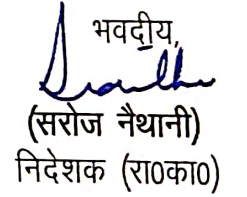 भवदीय,
(सरोज नैथानी)
निदेशक (रा0का0)